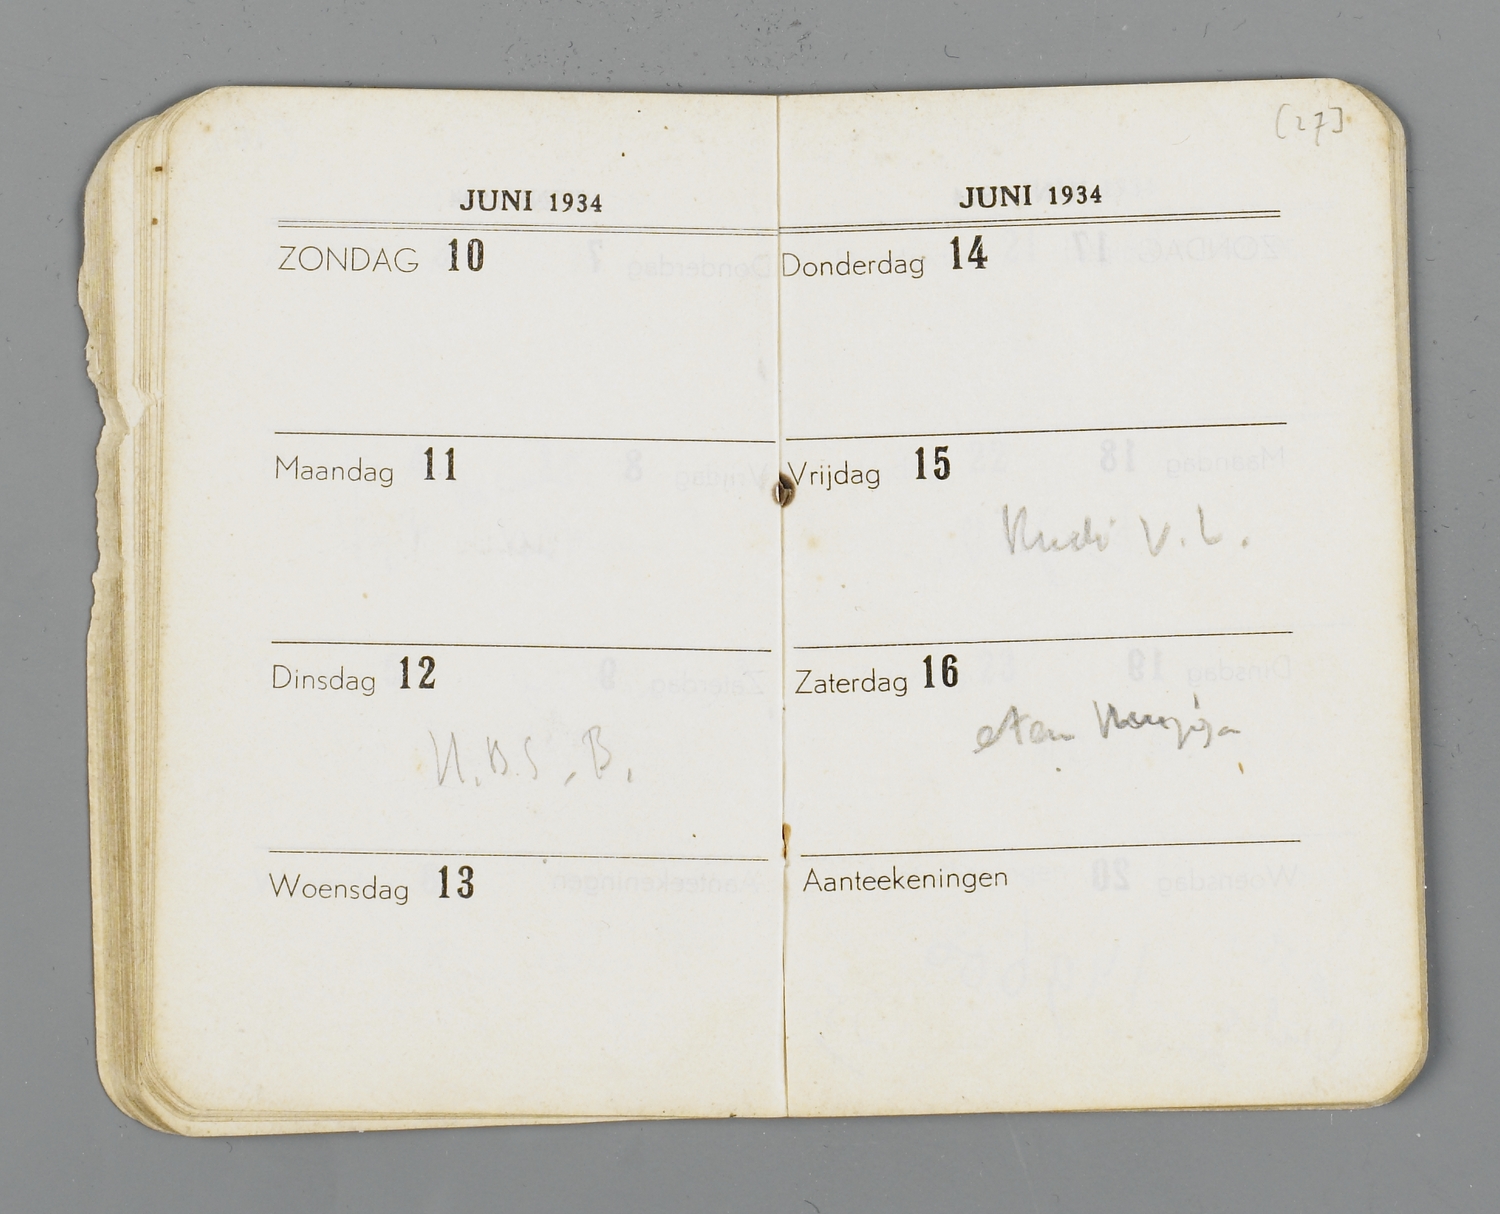 JUNI 1934
ZONDAG 10
Maandag 11
Dinsdag 12
H.B.S. B.
Woensdag 13
[27]
JUNI 1934
Donderdag 14
Vrijdag 15
Rudi v. L.
Zaterdag 16
eten
Aanteekeningen